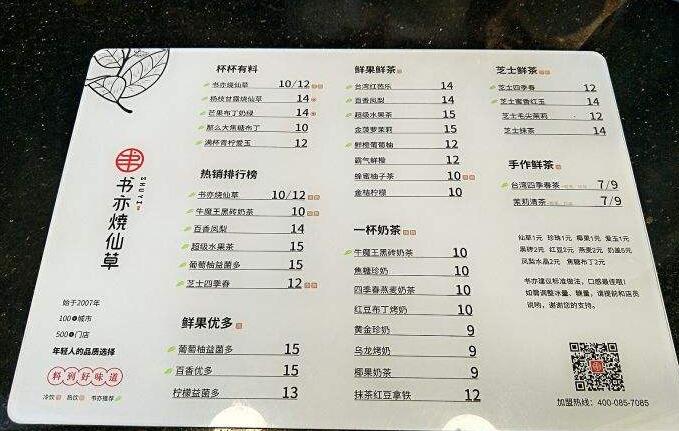 書
SHUYI
书亦燒仙草
始于2007年
100+城市
500+门店
年轻人的品质选择
料到好味道
冷饮 热饮 书亦推荐
杯杯有料
书亦烧仙草 10/12
杨枝甘露烧仙草 14
芒果布丁奶绿 14
那么大焦糖布丁 10
满杯青柠爱玉 12
热销排行榜
书亦烧仙草 10/12
牛魔王黑砖奶茶 10
百香凤梨 14
超级水果茶 15
葡萄柚益菌多 15
芝士四季春 12
鲜果优多
葡萄柚益菌多 15
百香优多 15
柠檬益菌多 13
鲜果鲜茶
台湾红芭乐 14
百香凤梨 14
超级水果茶 15
金菠萝茉莉 15
鲜橙葡萄柚 12
霸气鲜橙 12
蜂蜜柚子茶 10
金桔柠檬 10
一杯奶茶
牛魔王黑砖奶茶 10
焦糖珍奶 10
四季春燕麦奶茶 10
红豆布丁烤奶 10
黄金珍奶 9
乌龙烤奶 9
椰果奶茶 9
抹茶红豆拿铁 12
芝士鲜茶
芝士四季春 12
芝士蜜香红玉 14
芝士毛尖茉莉 12
芝士抹茶 14
手作鲜茶
台湾四季春茶 7/9
茉莉清茶 7/9
仙草1元 珍珠1元 椰果1元 爱玉1元
黑砖2元 红豆2元 燕麦2元 奶盖5元
凤梨水晶2元 焦糖布丁2元
书亦建议标准做法，口感最佳哦！
如需调整冰量、糖量，请提前和店员
说哟，谢谢您的支持。
加盟热线：400-085-7085